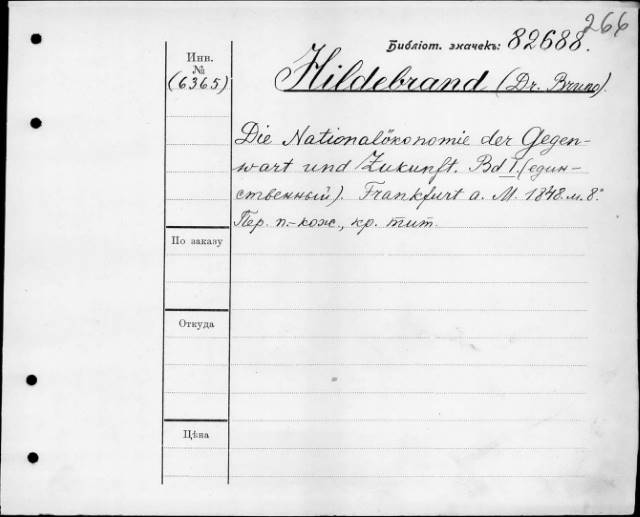 266
Библіот. значекъ: 82688.
Инв.
№
(6365)
Hildebrand (Dr. Bruno).
Die Nationalökonomie der Gegen-
wart und Zukunft. Bd I. (един-
ственный). Frankfurt a. M. 1848. м. 8°
Пер. п.-кож., кр. тит.
По заказу
Откуда
Цѣна